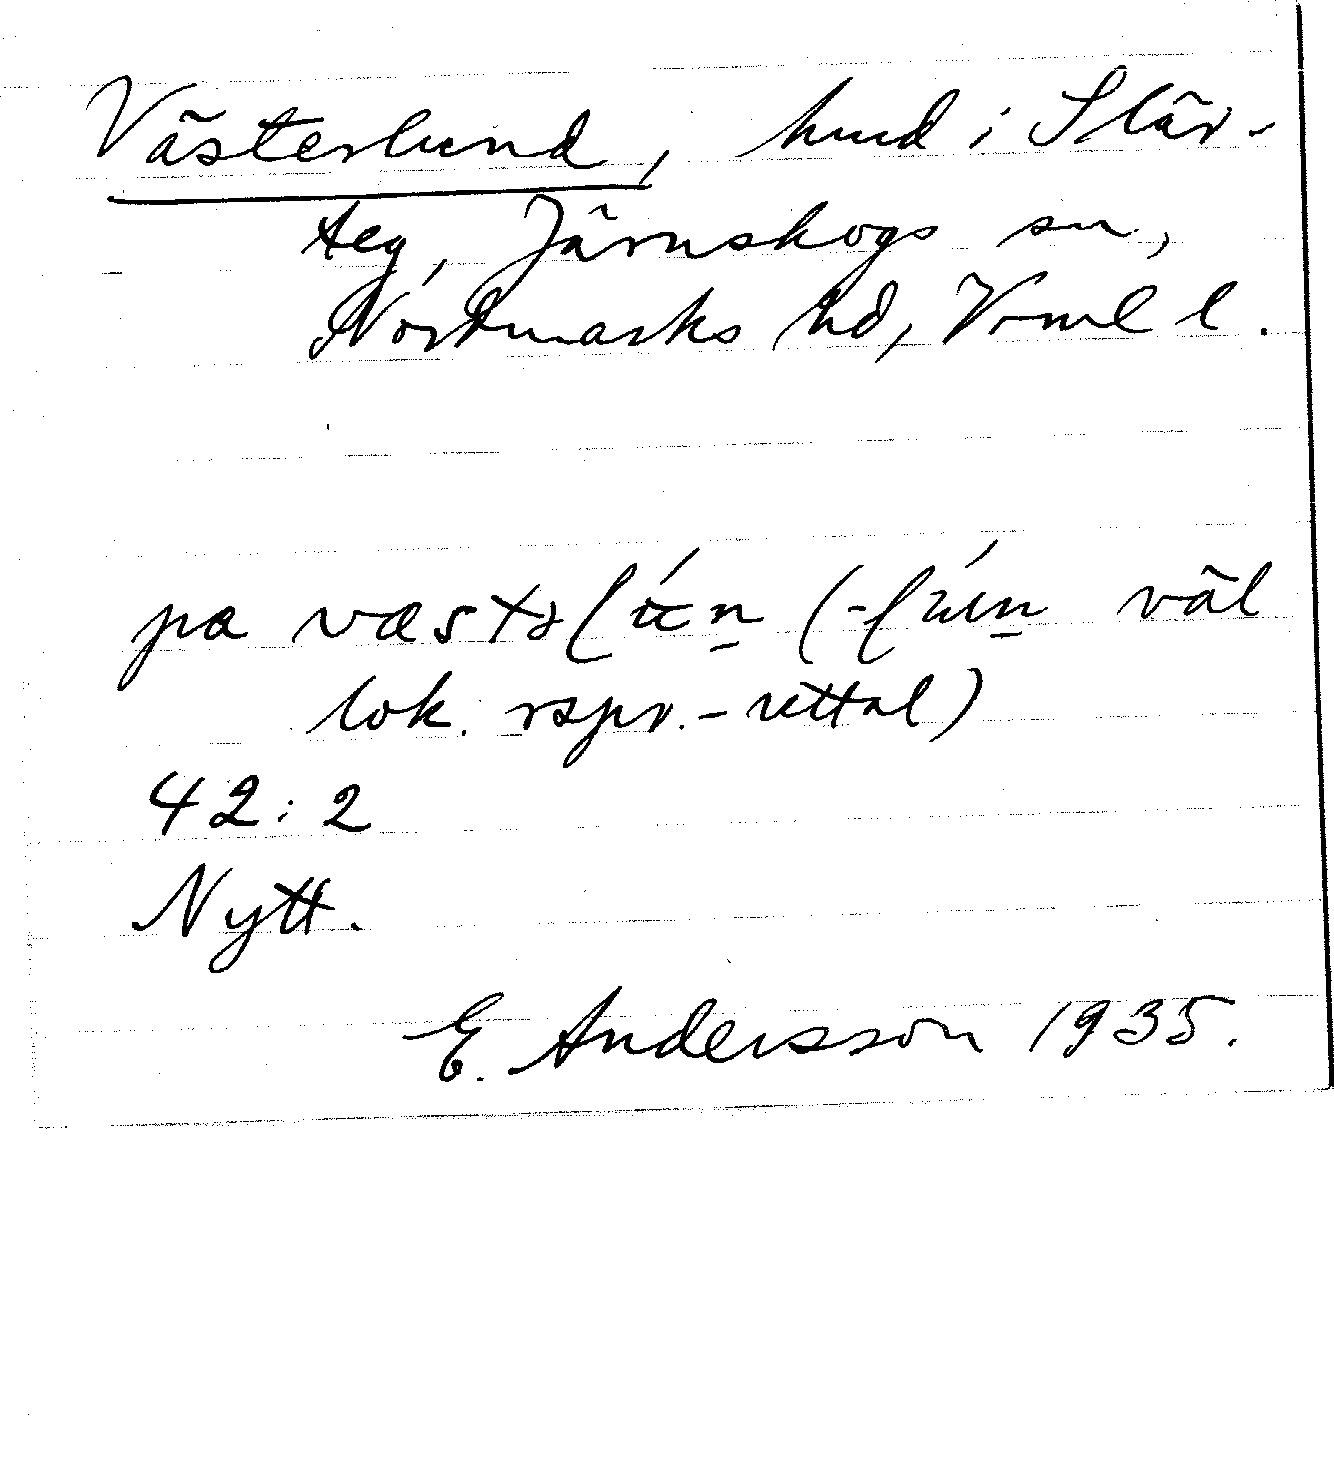 Västerlund, hmd i Slär-
teg, Järnskogs sn,
Nordmarks hd, Vrml l.
pa væstə
lok. rspr.-uttal)
42:2
Nytt.
E. Andersson 1935.